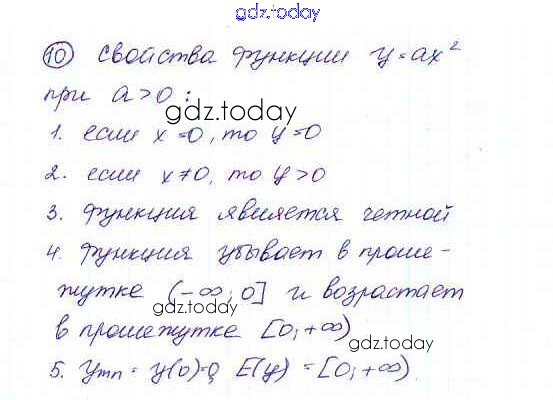 gdz.today
10 Свойства функции y=ax²
при a>0:
gdz.today
1. если x=0, то y=0
2. если x≠0, то y>0
3. Функция является четной
4. Функция убывает в проме-
жутке (-∞; 0] и возрастает
в промежутке [0; +∞)
gdz.today
5. Ymin = y(0)=0, E(y) = [0; +∞)